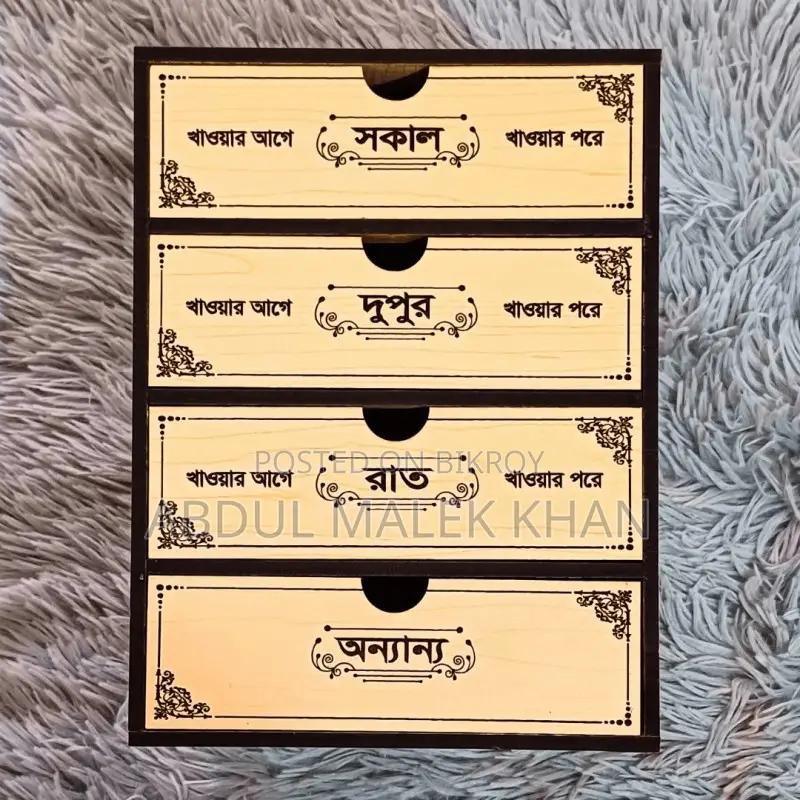 খাওয়ার আগে সকাল খাওয়ার পরে
খাওয়ার আগে দুপুর খাওয়ার পরে
POSTED ON BIKROY
খাওয়ার আগে রাত খাওয়ার পরে
ABDUL MALEK KHAN
অন্যান্য